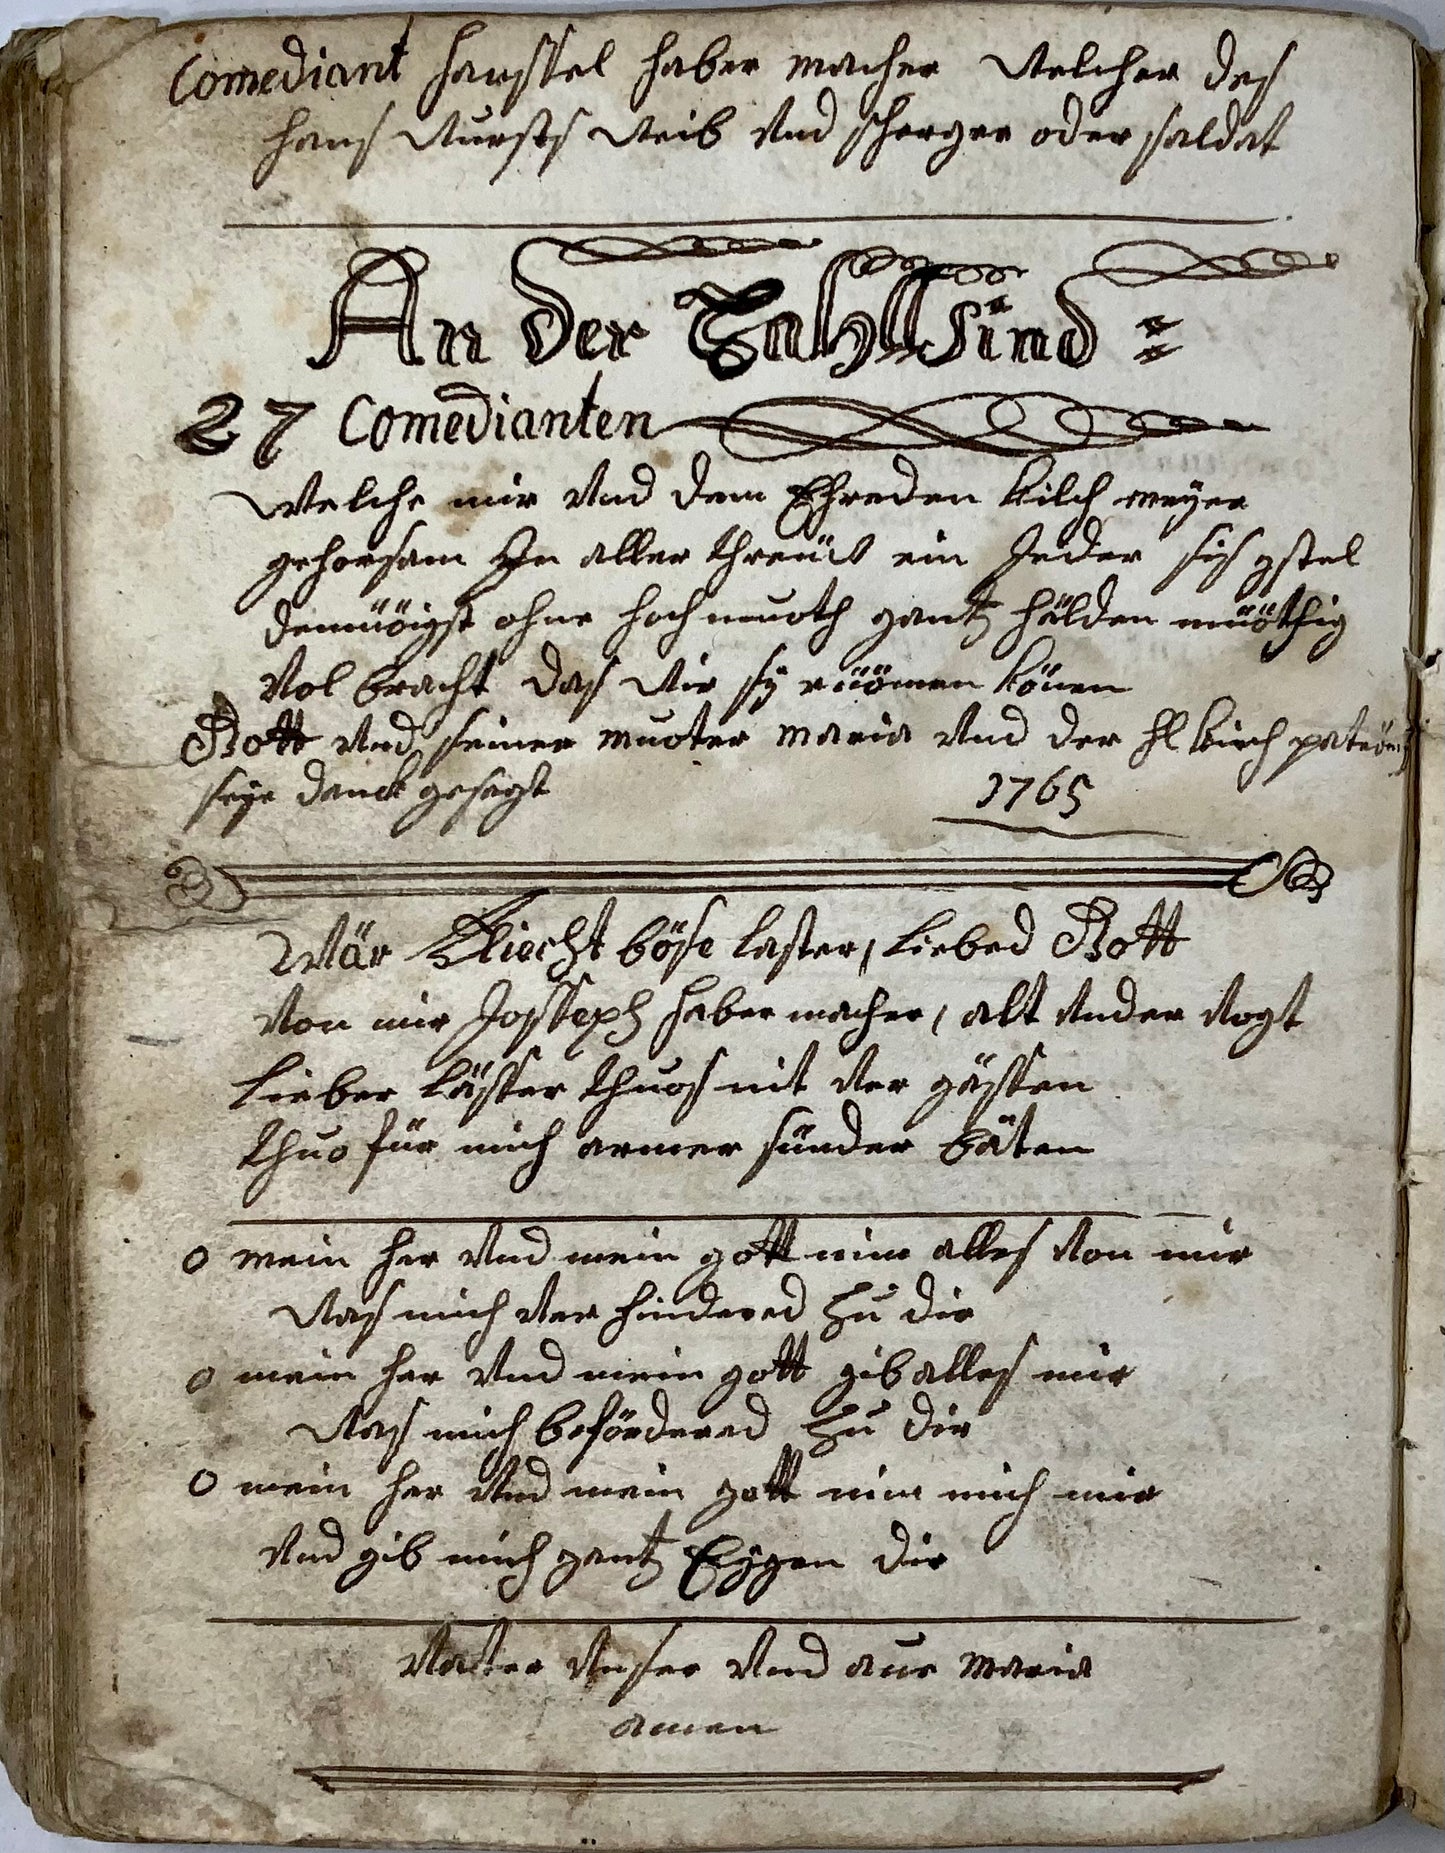 Comediant hansſel haber macher Welcher des
hans Wursts Weib Vnd scherger oder saldat
An der Zahll sind :
27 Comedianten
Welche mir Vnd dem Ehreden kilch meyer
gehorsam In aller threüw ein Jeder sis gstel
demüöigst ohne hochmuoth gantz hälden müöthig
Vol bracht das Wir sy rüömen könen
Gott Vnd seiner muoter maria Vnd der hl kirch patrön
seye danck gesagt 1765
Wär fliecht böse laster, liebed Gott
Von mir Josseph haber macher, alt Vnder Vogt
lieber lässer thuos nit Ver gässen
thuo für mich armer sünder bäten
o mein her Vnd mein gott nim alles Von mir
Was mich Ver hindered Zu dir
o mein her Vnd mein gott gib alles mir
Was mich befördered Zu dir
O mein her Vnd mein gott nim mich mir
Vnd gib mich gantz Eygen dir
Vatter Vnser Vnd aue Maria
amen